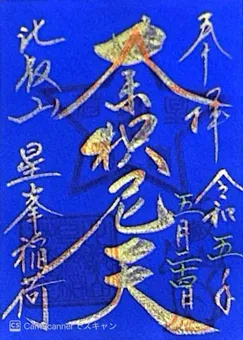 奉拝
令和五年
五月二十四日
荼枳尼天
比叡山
星峯稲荷
CS CamScanner でスキャン